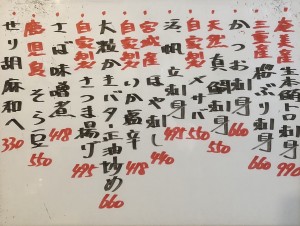 奄美産生本鮪トロ刺身 990
三重産桜ぶり刺身 660
かつお刺身 550
天然真鯛刺身 660
自家製〆サバ 550
活帆立刺身 495
宮城産ほや刺し 440
自家製いか塩辛 418
大粒かきバタ正油炒め 660
自家製さつま揚げ 495
さば味噌煮 418
鹿児島そら豆 550
せり胡麻和へ 330